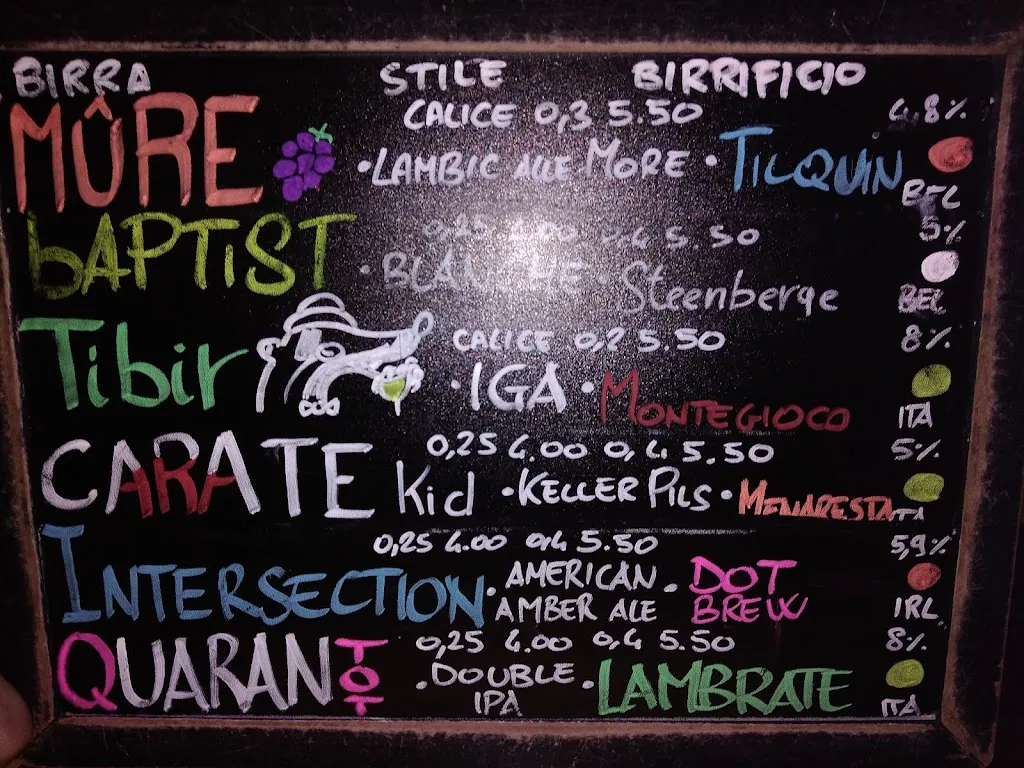 BIRRA STILE BIRRIFICIO
CALICE 0,3 5.50 4,8%
MÛRE • LAMBIC ALLE MORE • TILQUIN
BEL
0,25 4.00 0,4 5.50 5%
bAPTIST • BLANCHE • Steenberge
BEL
CALICE 0,2 5.50 8%
Tibir • IGA • MONTEGIOCO
ITA
0,25 4.00 0,4 5.50 5%
CARATE Kid • KELLER PILS • MENARESTA
ITA
0,25 4.00 0,4 5.50 5,9%
INTERSECTION • AMERICAN AMBER ALE • DOT BREW
IRL
0,25 4.00 0,4 5.50 8%
QUARANTOT • DOUBLE IPA • LAMBRATE
ITA